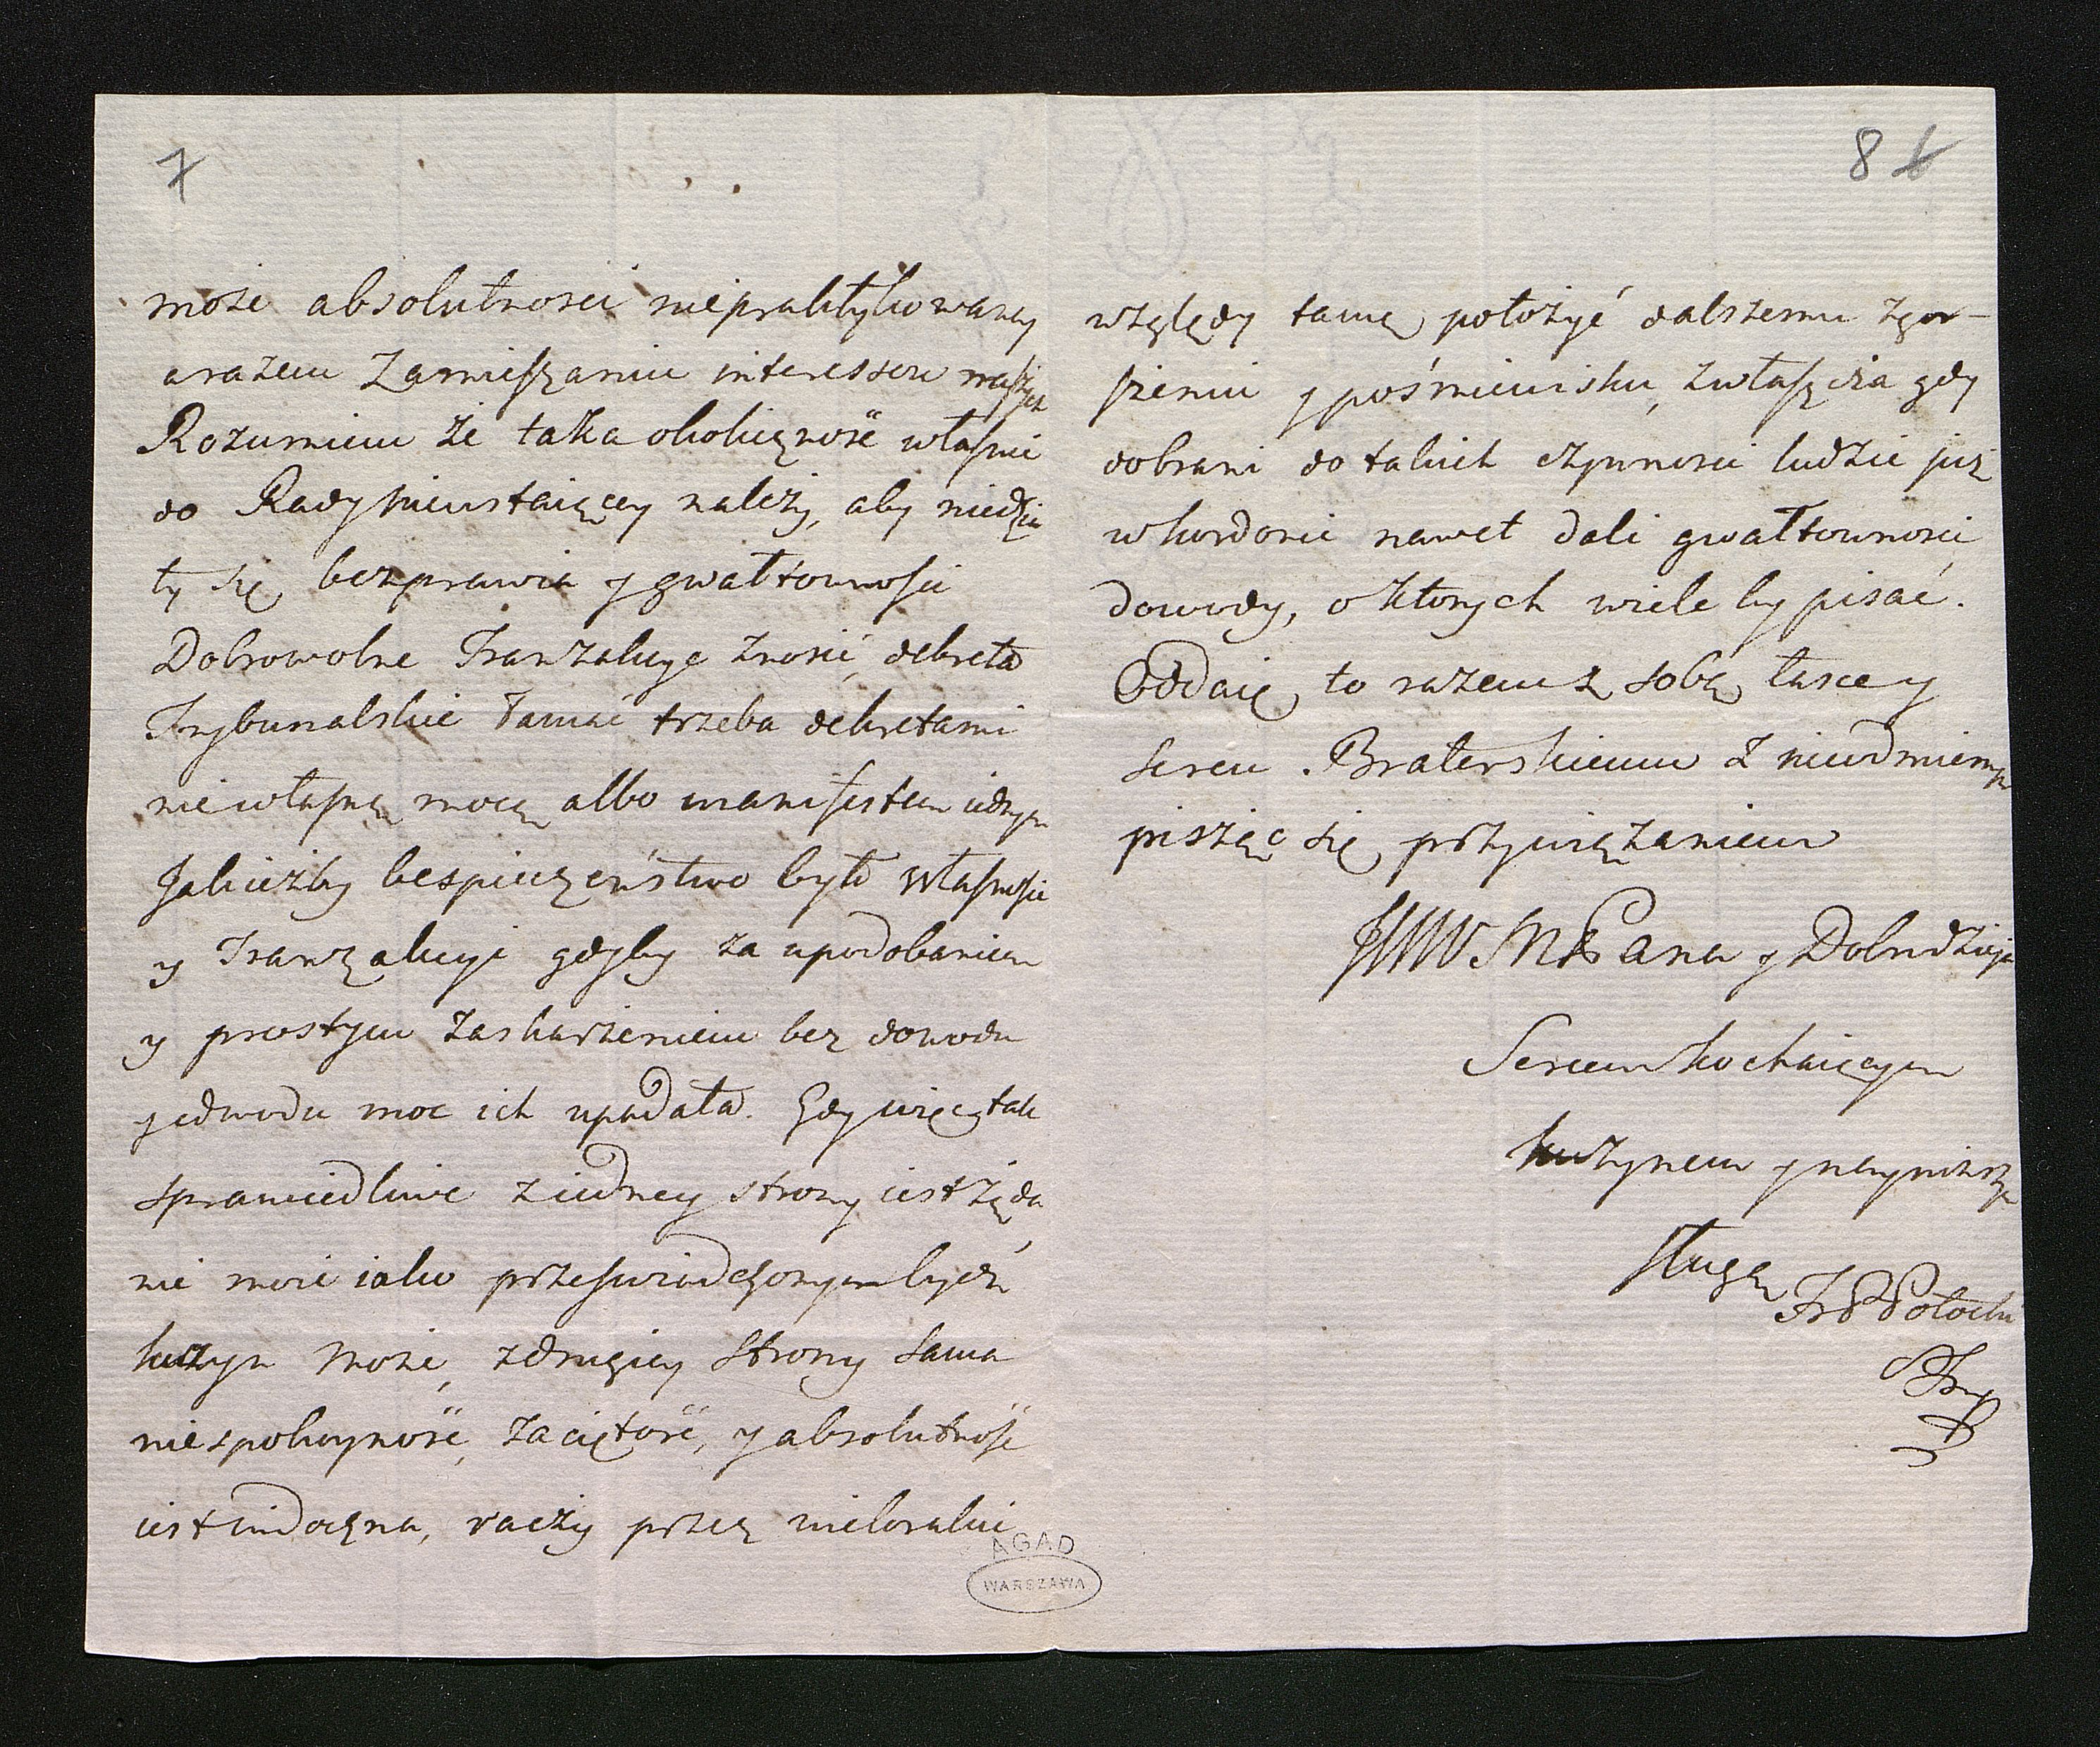 7
może absolutnosci niepraktykowaney
a razem Zamięszaniu interessow naszych
Rozumiem że taka okolicznosć własnie
do Rady nieustaiącey należy, aby niedzia
ły się bezprawia y gwałtownosci
Dobrowolne Tranzakcye znosić, dekreta
Trybunalskie łamać trzeba dekretami
nie własną mocą albo manifestem iednym
Jakieżby bespieczeństwo było własnosci
y Tranzakcyi gdyby za upodobaniem
y prostym zaskarżeniem bez dowodu
y odwodu moc ich upadała. Gdy więc tak
sprawiedliwe z iedney strony iest żąda
nie moie iako przeswiadczonym bydź
kuzyn może, z drugiey strony sama
niespokoynosć, zaciętosć, y absolutnosć
iest widoczna, raczy przez wielorakie
AGAD
WARSZAWA
8 6
względy tamę położyć dalszemu zgor-
szeniu y pośmiewisku, zwłaszcza gdy
dobrani do takich czynnosci ludzie już
w kordonie nawet dali gwałtownosci
dowody, o ktorych wiele by pisać.
Oddaię to razem z sobą łasce y
sercu Braterskiemu z nieodmiennym
pisząc się przywiązaniem
JWW M Pana y Dobrodzieja
Sercem kochaiącym
kuzynem y naynizszym
sługą
Potocki